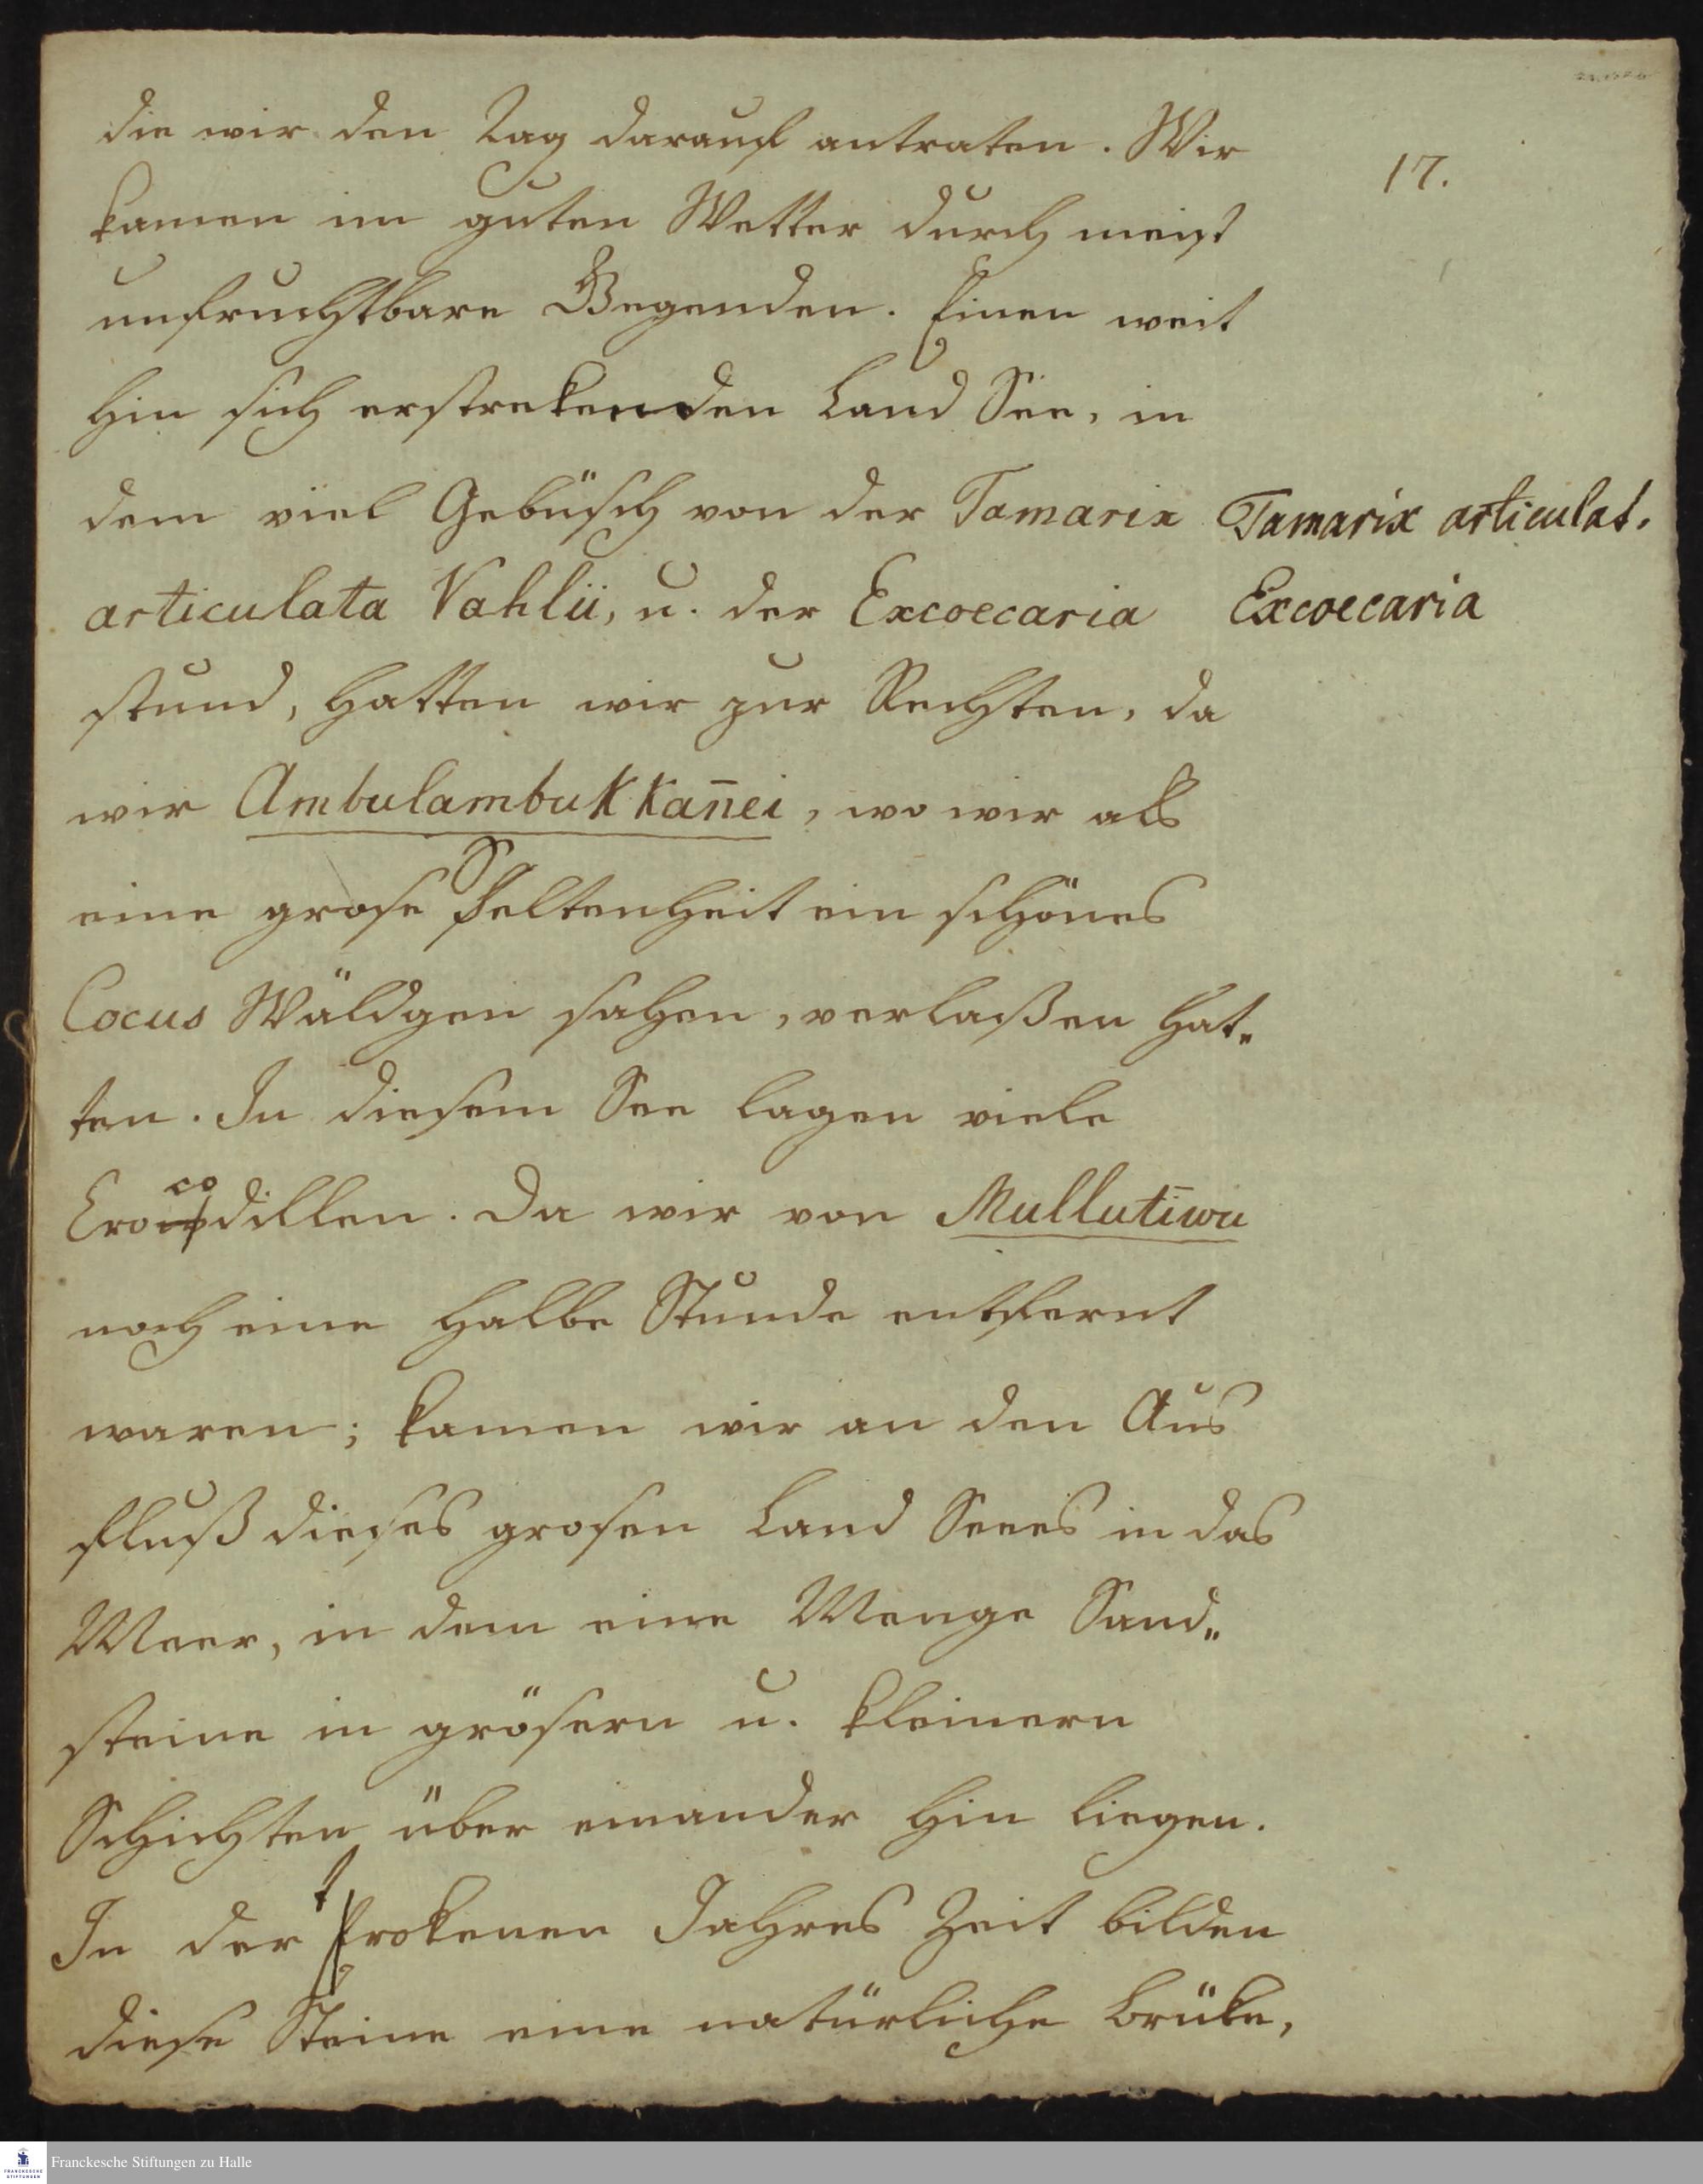 17.
die wir den Tag darauf antraten. Wir
kamen im guten Wetter durch meist
unfruchtbare Gegenden. Einen weit
hin sich erstrekenden Land See, in
dem viel Gebüsch von der Tamarix
Tamarix articulat.
articulata Vahlii, u. der Excoecaria
Excoecaria
stund, hatten wir zur Rechten, da
wir Ambulambukkan̄ei, wo wir als
eine grose Seltenheit ein schönes
Cocus Wäldgen sahen, verlaßen hat„
ten. In diesem See lagen viele
Crocodillen. Da wir von Mullutīwu
noch eine halbe Stunde entfernt
waren; kamen wir an den Aus
fluß dieses grosen Land Sees in das
Meer, in dem eine Menge Sand„
steine in grösern u. kleinern
Schichten über einander hin liegen.
In der trokenen Jahres Zeit bilden
diese Steine eine natürliche Brüke,
Franckesche Stiftungen zu Halle
FRANCKESCHE
STIFTUNGEN